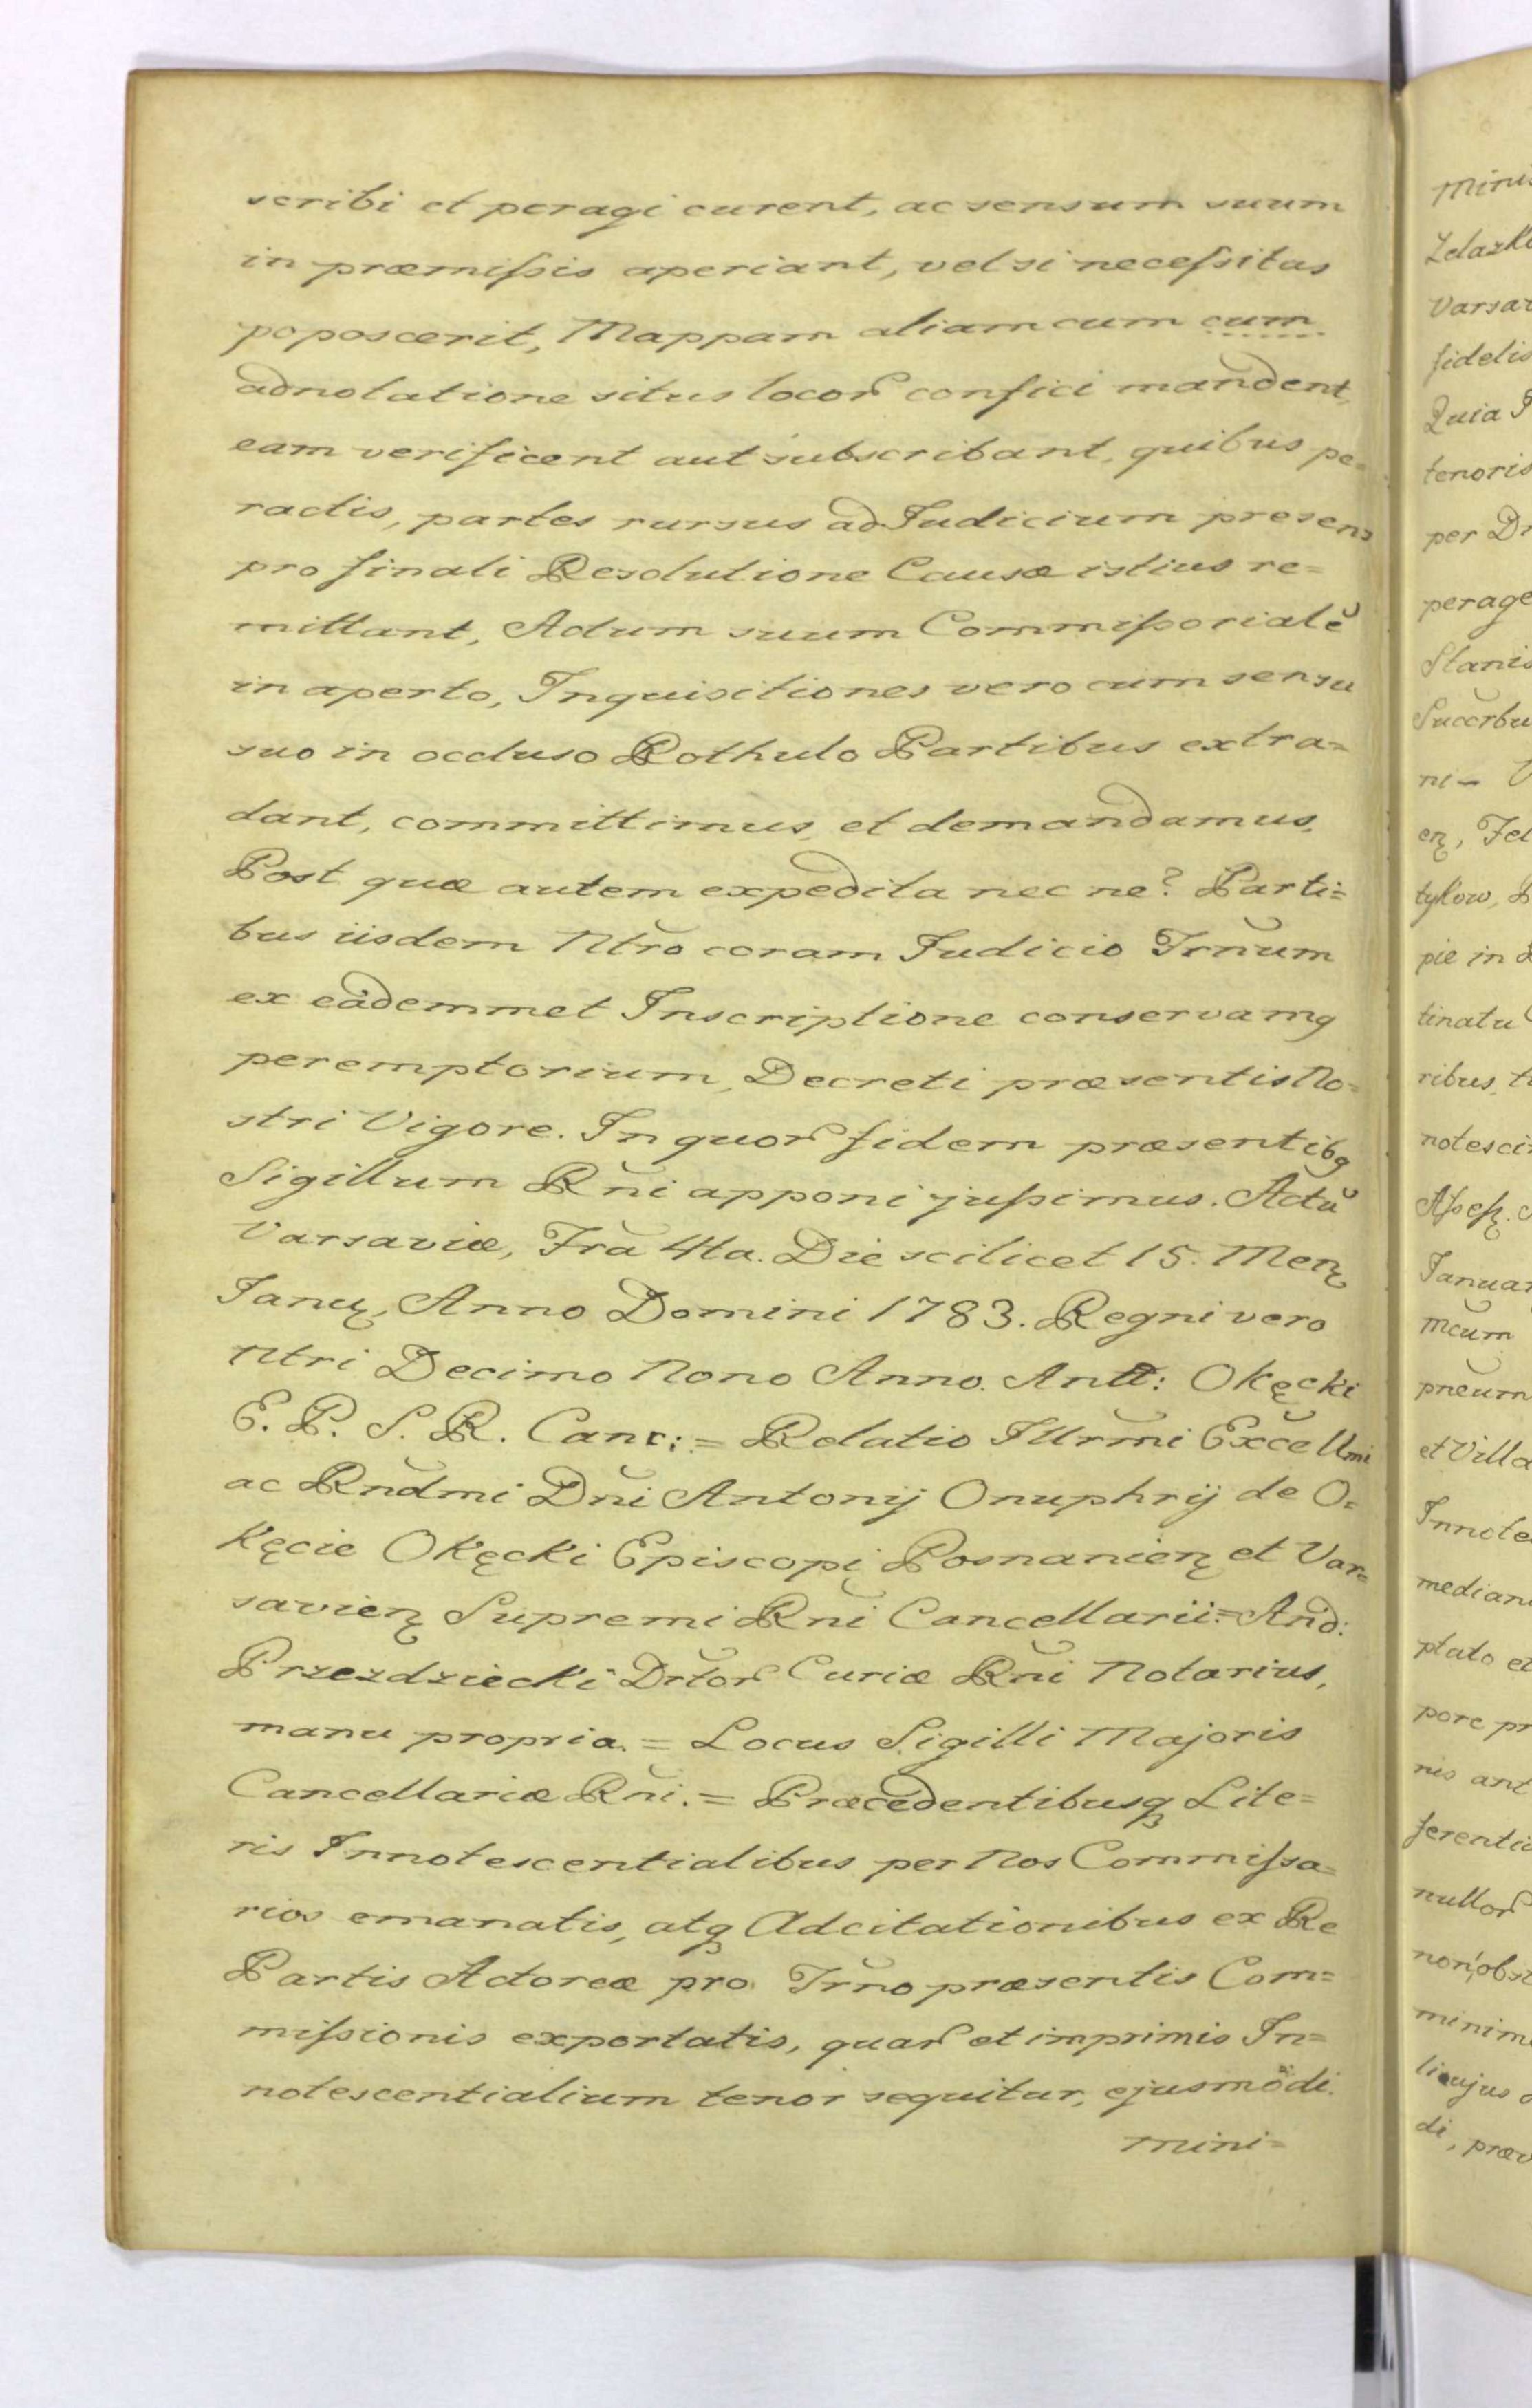 scribi et peragi curent, ac sensum suum
in præmiſsis aperiant, vel si neceſsitas
poposcerit, Mappam aliam cum cum
adnotatione situs locoꝝ confici mandent,
eam verificent aut subscribant, quibus pe=
ractis, partes rursus ad Judicium presens
pro finali Resolutione Causæ istius re=
mittant, Actum suum Commiſsorialẽ
in aperto, Inquisitiones vero cum sensu
suo in occluso Rothulo Partibus extra=
dant, committimus, et demandamus,
Post quæ autem expedita nec ne? Parti=
bus iisdem Ntr̃o coram Judicio Trñum
ex eâdemmet Inscriptione conservamꝯ
peremptorium, Decreti præsentis No=
stri Vigore. In quoꝝ fidem præsentibꝯ
Sigillum Rñi apponi juſsimus. Actũ
Varsaviæ, Fr̃a 4ta. Die scilicet 15. Menꝭ
Januꝭ, Anno Domini 1783. Regni vero
Ntri Decimo Nono Anno. Antt: Okęcki
E. P. S. R. Canc: = Relatio Illrm̃i Exc̃ellmi
ac Rnd̃mi Dñi Antonij Onuphrij de O=
kęcie Okęcki Episcopi Posnanienꝭ et Var=
savienꝭ Supremi Rñi Cancellarii. = And:
Przezdziecki Drt̃oꝝ Curiæ Rñi Notarius,
manu propria. = Locus Sigilli Majoris
Cancellariæ Rñi. = Præcedentibusqꝫ Lite=
ris Innotescentialibus per Nos Commiſsa=
rios emanatis, atqꝫ Adcitationibus ex Re
Partis Actoreæ pro Trñno præsentis Com=
miſsionis exportatis, quaꝝ et imprimis In=
notescentialium tenor sequitur, ejusmodi.
mini=
Zelazk
Varsa
fidelis
Quia
tenoris
per
perage
Stanis
ni
tinatu
ribus
Januar
et Villa
Innote
median
plato et
pore
nis ant
ferenti
nulloꝝ
minim
di, præv